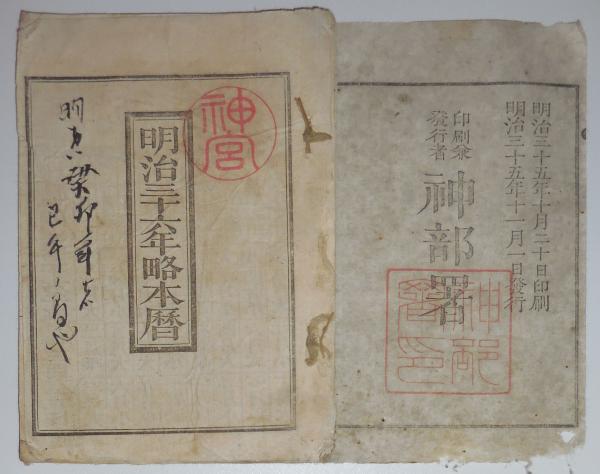 神宮
明治三十六年略本暦
明治三十五年十月二十日印刷
明治三十五年十一月一日發行
印刷兼
發行者
神部署
神部
署印